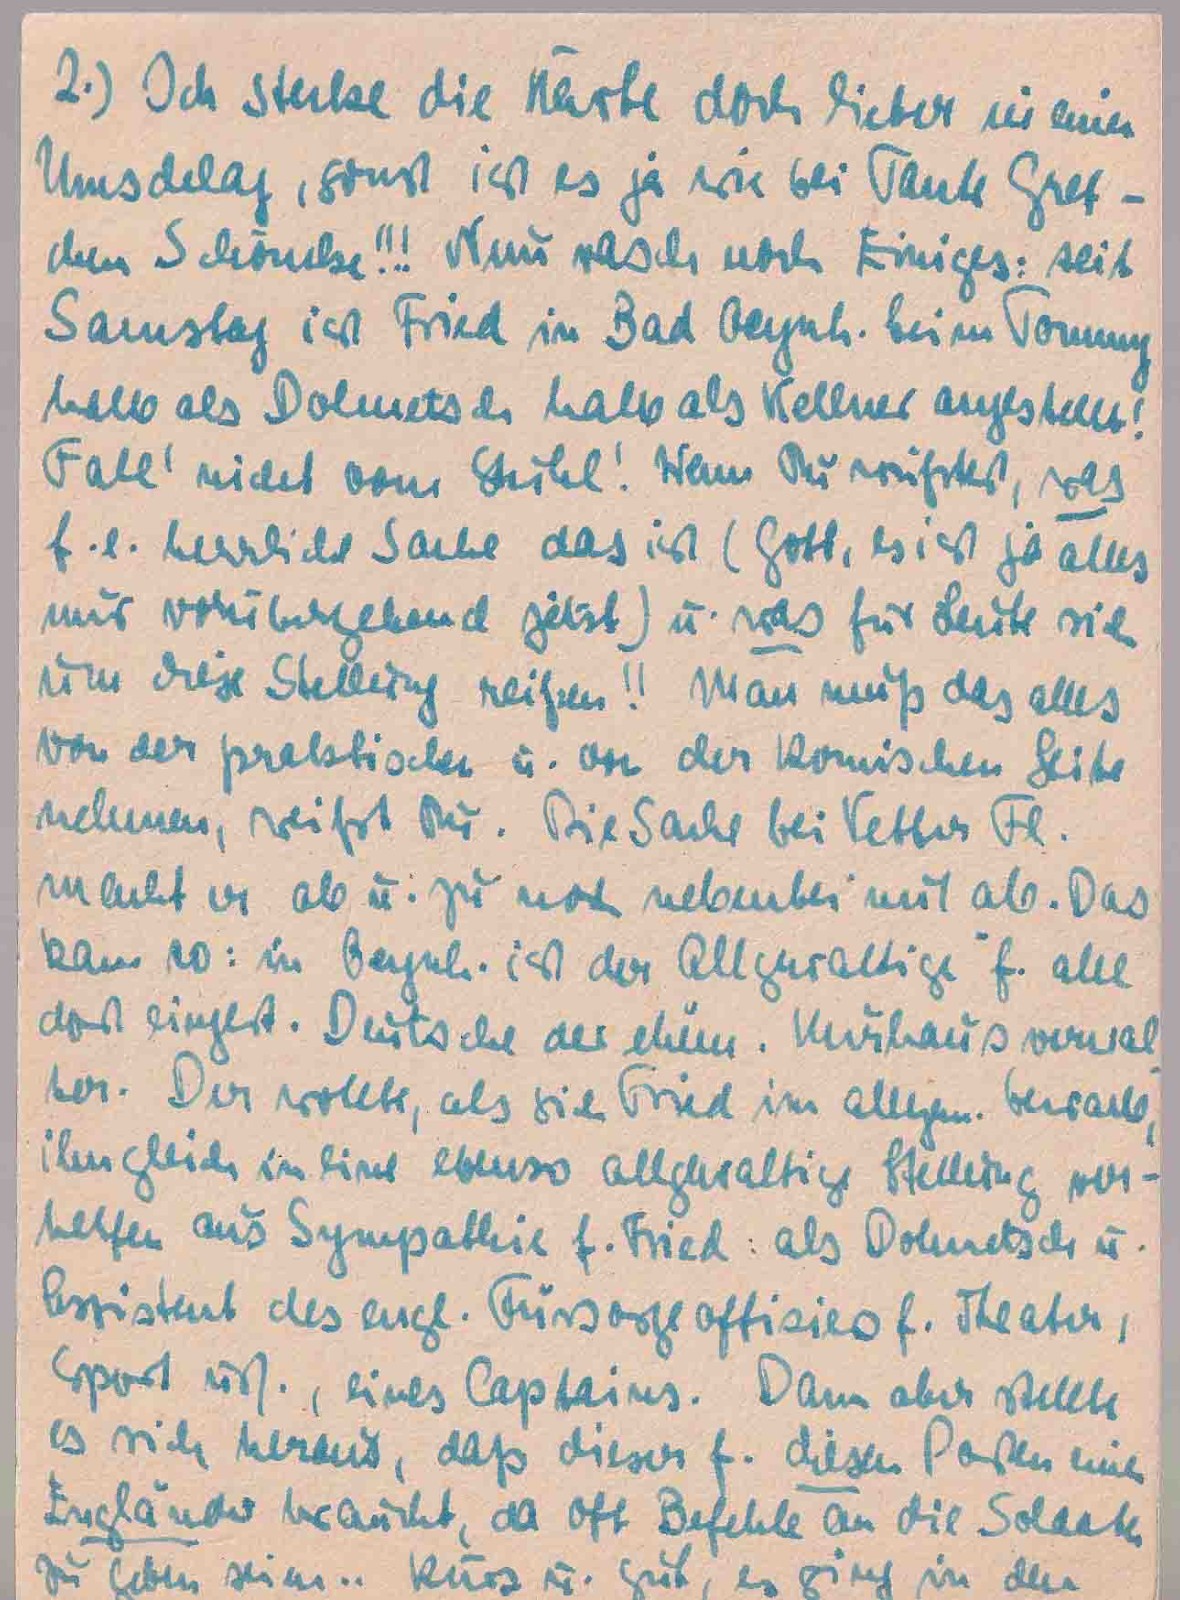 2.) Ich stecke die Karte doch lieber in einen
Umschlag, sonst ist es ja wie bei Tante Gret-
chen Schöneke!!! Nun rasch noch Einiges: seit
Samstag ist Fried in Bad Oeynh. beim Tommy
halb als Dolmetsch halb als Kellner angestellt!
Fall' nicht vom Stuhl! Wenn Du wüßtest, was
f. e. herrliche Sache das ist (Gott, es ist ja alles
nur vorübergehend jetzt) u. was für Leute sich
um diese Stellung reißen!! Man muß das alles
von der praktischen u. von der komischen Seite
nehmen, weißt Du. Die Sache bei Vetter Fl.
macht er ab u. zu noch nebenbei mit ab. Das
kam so: in Oeynh. ist der Allgewaltige f. alle
dort eingest. Deutsche der ehem. Kurhausverwal
ter. Der wollte, als sich Fried im allgem. bewarb,
ihm gleich in eine ebenso allgewaltige Stellung ver-
helfen aus Sympathie f. Fried: als Dolmetsch u.
Assistent des engl. Fürsorgeoffiziers f. Theater,
Sport usf., eines Captains. Dann aber stellte
es sich heraus, daß dieser f. diesen Posten einen
Engländer braucht, da oft Befehle an die Soldaten
zu geben seien.. Kurz u. gut, es ging in den